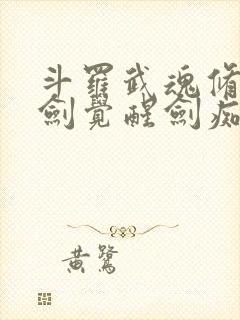 斗羅武魂脩
劍覺醒劍痴
黃鷺